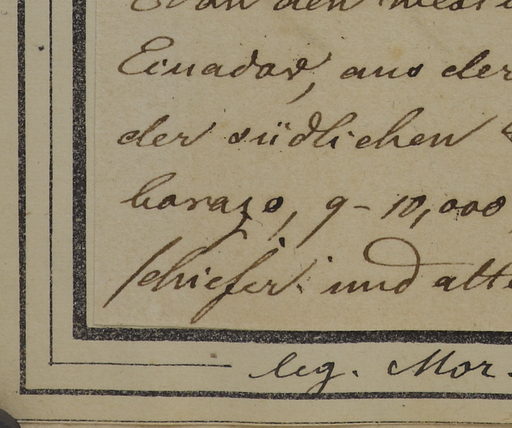 von den west
Ecuador, aus der
der südlichen
borazo, 9-10,000
schiefer und alte
leg. Mor.